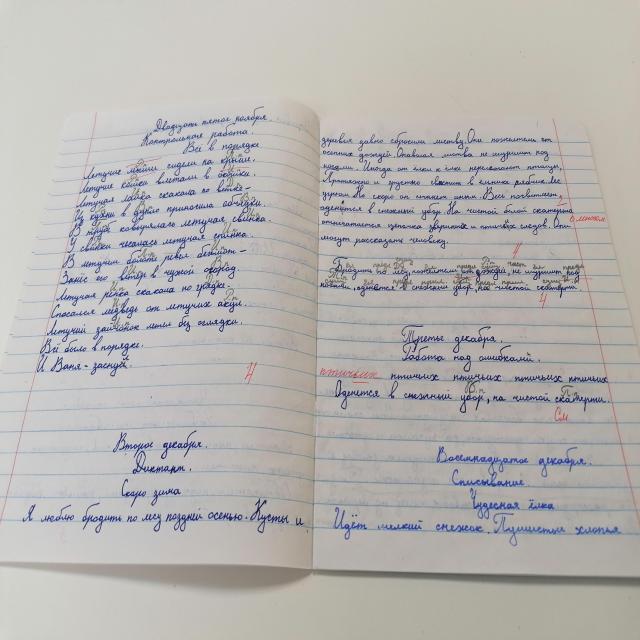 Двадцать пятое ноября.
Контрольная работа.
Всё в порядке
Летучие мыши сидели на крыше.
Летучие кошки влетали в окошки.
Летучая лайка скакала по
В трубе кувыркалась летучая свинка.
У свинки чесалась летучая спинка.
В летучем болоте ревел бегемот –
Занёс его ветер в чужой огород.
Летучая репка скакала по грядке.
Спасался медведь от летучих акул.
Летучий зайчонок летел без оглядки.
Всё было в порядке.
И Ваня – заснул.
Второе декабря.
Диктант.
Скоро зима
Я люблю бродить по лесу поздней осенью. Кусты и
деревья давно сбросили листву. Они пожелтели от
осенних дождей. Опавшая листва не шуршит под
ногами. Иногда от ёлки к ёлке перелетают птицы.
и грустно свистит в ельнике рябчик. Лес
угрюм. Но скоро он
оденется в снежный убор. На чистой белой скатерти
отпечатается цепочка звериных и птичьих следов. Они
могут рассказать человеку.
Бродить по лесу, пожелтели от дождей, не шуршит под
ногами, оденется в снежный убор, на чистой скатерти.
Третье декабря.
Работа над ошибками.
птичьих птичьих птичьих птичьих птичьих
Оденется в снежный убор, на чистой скатерти.
См
Восемнадцатое декабря.
Списывание
Чудесная ёлка
Идёт мелкий снежок. Пушистые хлопья